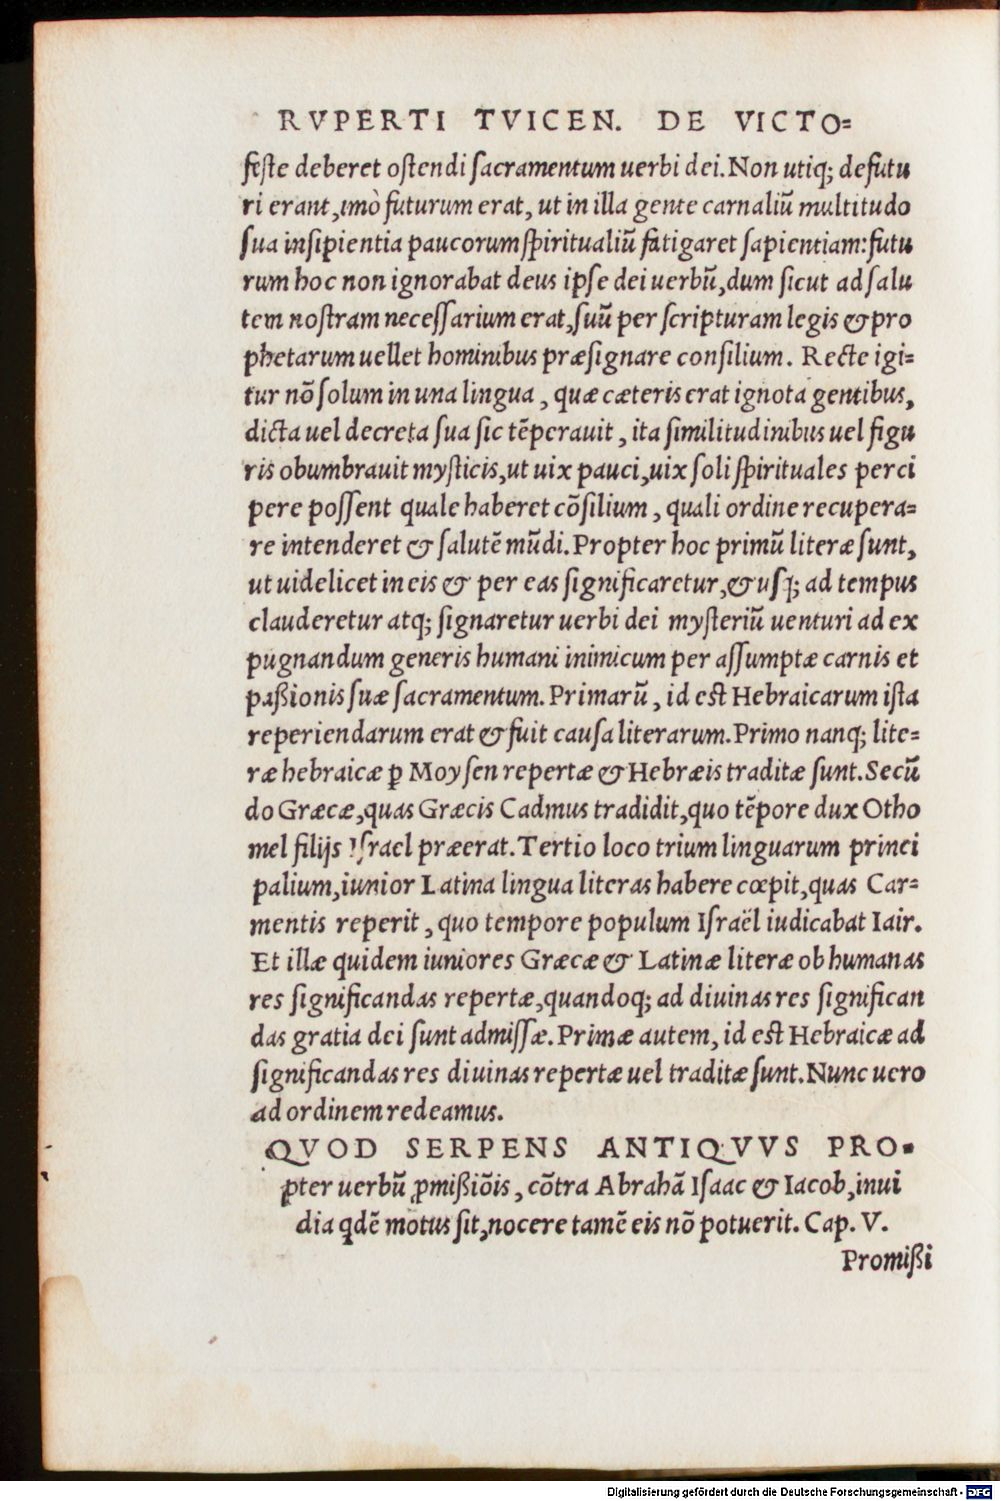 RVPERTI TVICEN. DE VICTO=
feste deberet ostendi sacramentum uerbi dei. Non utiq; defutu
ri erant, imò futurum erat, ut in illa gente carnaliũ multitudo
sua insipientia paucorum spiritualiũ fatigaret sapientiam: futu
rum hoc non ignorabat deus ipse dei uerbũ, dum sicut ad salu
tem nostram necessarium erat, suũ per scripturam legis & pro
phetarum uellet hominibus præsignare consilium. Recte igi=
tur nõ solum in una lingua, quæ cæteris erat ignota gentibus,
dicta uel decreta sua sic tẽperauit, ita similitudinibus uel figu
ris obumbrauit mysticis, ut uix pauci, uix soli spirituales perci
pere possent quale haberet cõsilium, quali ordine recupera=
re intenderet & salutẽ mũdi. Propter hoc primũ literæ sunt,
ut uidelicet in eis & per eas significaretur, & usq; ad tempus
clauderetur atq; signaretur uerbi dei mysteriũ uenturi ad ex
pugnandum generis humani inimicum per assumptæ carnis et
paßionis suæ sacramentum. Primarũ, id est Hebraicarum ista
reperiendarum erat & fuit causa literarum. Primo nanq; lite=
ræ hebraicæ ꝑ Moysen repertæ & Hebræis traditæ sunt. Secũ
do Græcæ, quas Græcis Cadmus tradidit, quo tẽpore dux Otho
mel filijs Israel præerat. Tertio loco trium linguarum princi
palium, iunior Latina lingua literas habere cœpit, quas Car=
mentis reperit, quo tempore populum Israël iudicabat Iair.
Et illæ quidem iuniores Græcæ & Latinæ literæ ob humanas
res significandas repertæ, quandoq; ad diuinas res significan
das gratia dei sunt admissæ. Primæ autem, id est Hebraicæ ad
significandas res diuinas repertæ uel traditæ sunt. Nunc uero
ad ordinem redeamus.
QVOD SERPENS ANTIQVVS PRO=
pter uerbũ ꝓmißiõis, cõtra Abrahã Isaac & Iacob, inui
dia qdẽ motus sit, nocere tamẽ eis nõ potuerit. Cap. V.
Promißi
Digitalisierung gefördert durch die Deutsche Forschungsgemeinschaft - DFG